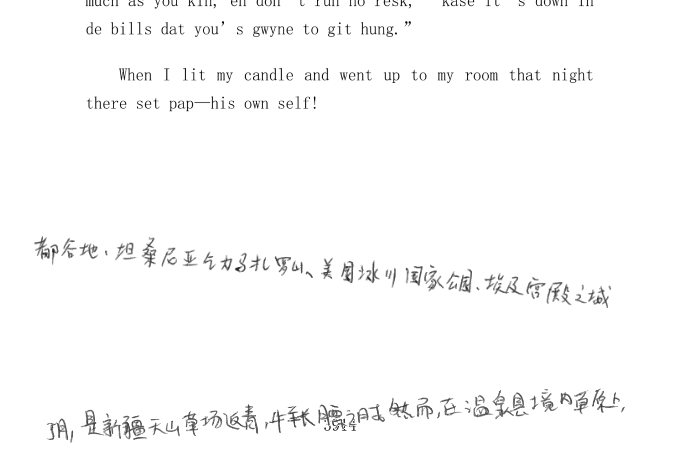 much as you kin, en don't run no resk, 'kase it's down in
de bills dat you's gwyne to git hung.”
When I lit my candle and went up to my room that night
there set pap—his own self!
都谷地、坦桑尼亚乞力马扎罗山、美国冰川国家公园、埃及宫殿之城
3月,是新疆天山草场返青,牛羊长膘之时。然而,在温泉县境内草原上,